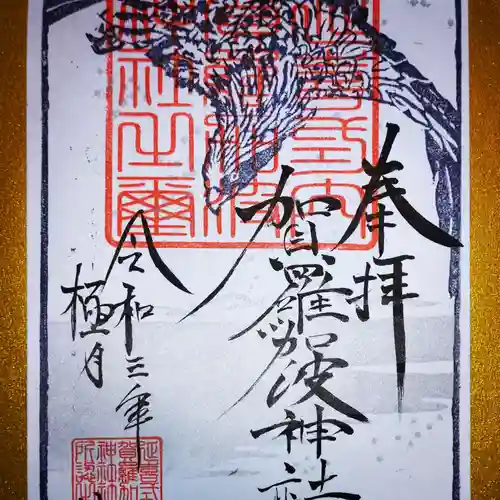 奉拝
賀羅加波神社
令和三年
極月
延喜式内
賀羅加
神社社